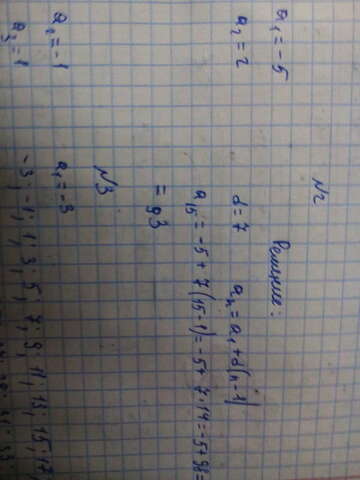 №2
a₁ = -5 Решение:
a₂ = 2 d = 7 aₙ = a₁ + d(n-1)
a₁₅ = -5 + 7(15-1) = -5 + 7·14 = -5 + 98 =
= 93
№3
a₂ = -1 a₁ = -3
a₃ = 1 -3; -1; 1; 3; 5; 7; 9; 11; 13; 15; 17;